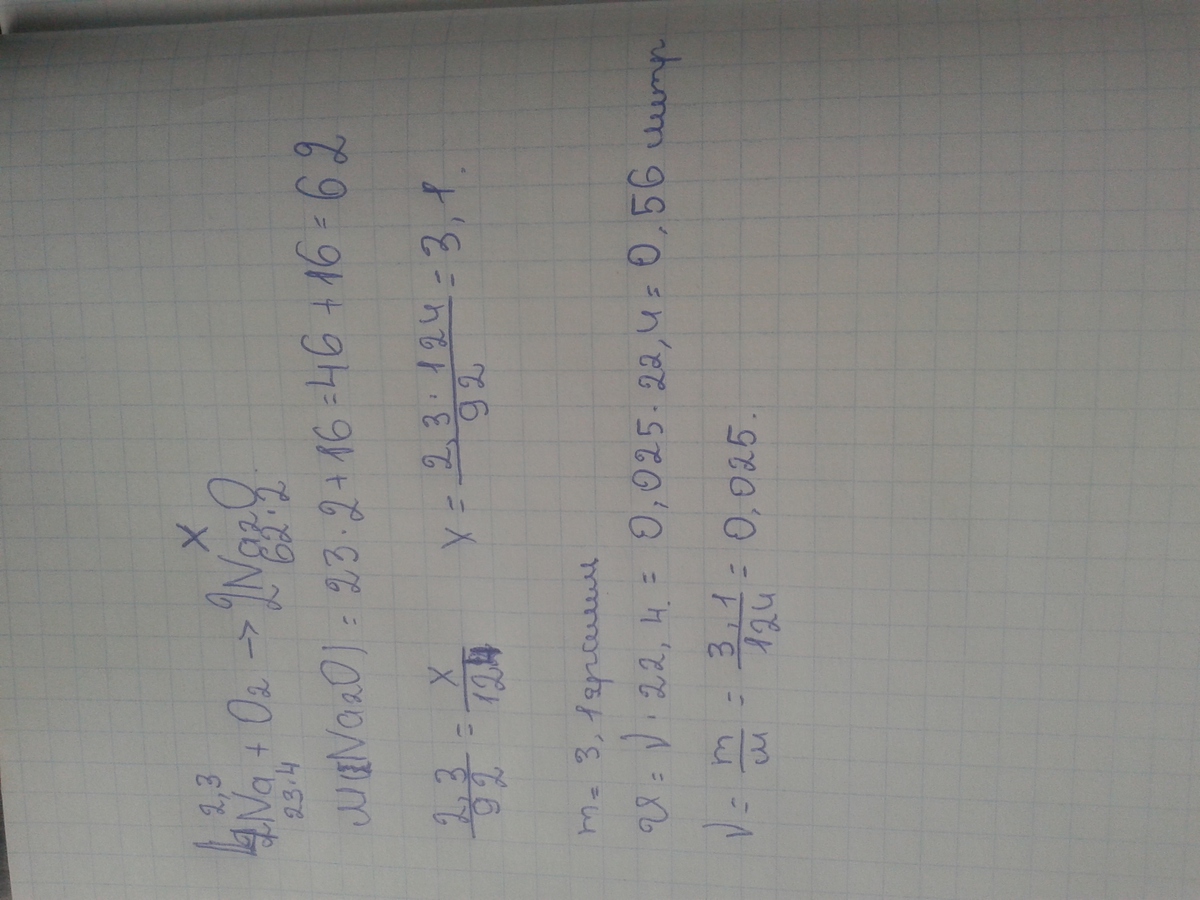 2,3 x
4Na + O2 → 2Na2O
23·4 62·2
M(Na2O) = 23·2+16=46+16=62
2,3/92 = x/124 x = 2,3·124/92 = 3,1.
m = 3,1 грамм
V = ν·22,4 = 0,025·22,4 = 0,56 литр
ν = m/M = 3,1/124 = 0,025.